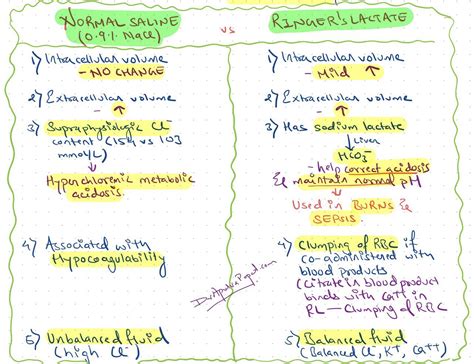 NORMAL SALINE
(0.9% NaCl)
vs
RINGER'S LACTATE
1) Intracellular volume
- NO CHANGE
2) Extracellular volume
- ↑
3) Supraphysiologic Cl-
content (154 vs 103
mmol/L)
Hyperchloremic metabolic
acidosis.
4) Associated with
Hypocoagulability
5) Unbalanced fluid
(high Cl-)
1) Intracellular volume
- Mild ↑
2) Extracellular volume
- ↑
3) Has sodium lactate
↓ Liver
HCO3-
- help correct acidosis
& maintain normal pH
↓
Used in BURNS &
SEPSIS.
4) Clumping of RBC if
co-administered with
blood products
(Citrate in blood product
binds with Ca++ in
RL — Clumping of RBC
5) Balanced fluid
(Balanced Cl-, K+, Ca++)